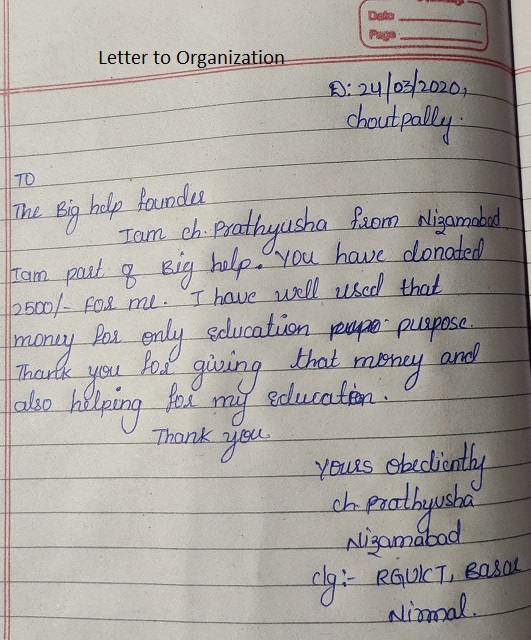 Date
Page
Letter to Organization
D: 24/03/2020,
choutpally.
TO
The Big help founder
Iam ch. Prathyusha from Nizamabad
Iam part of Big help. You have donated
2500/- For me. I have well used that
money for only education purpose.
Thank you for giving that money and
also helping for my education.
Thank you.
yours obediently
ch. prathyusha
Nizamabad
clg:- RGUKT, Basar
Nirmal.